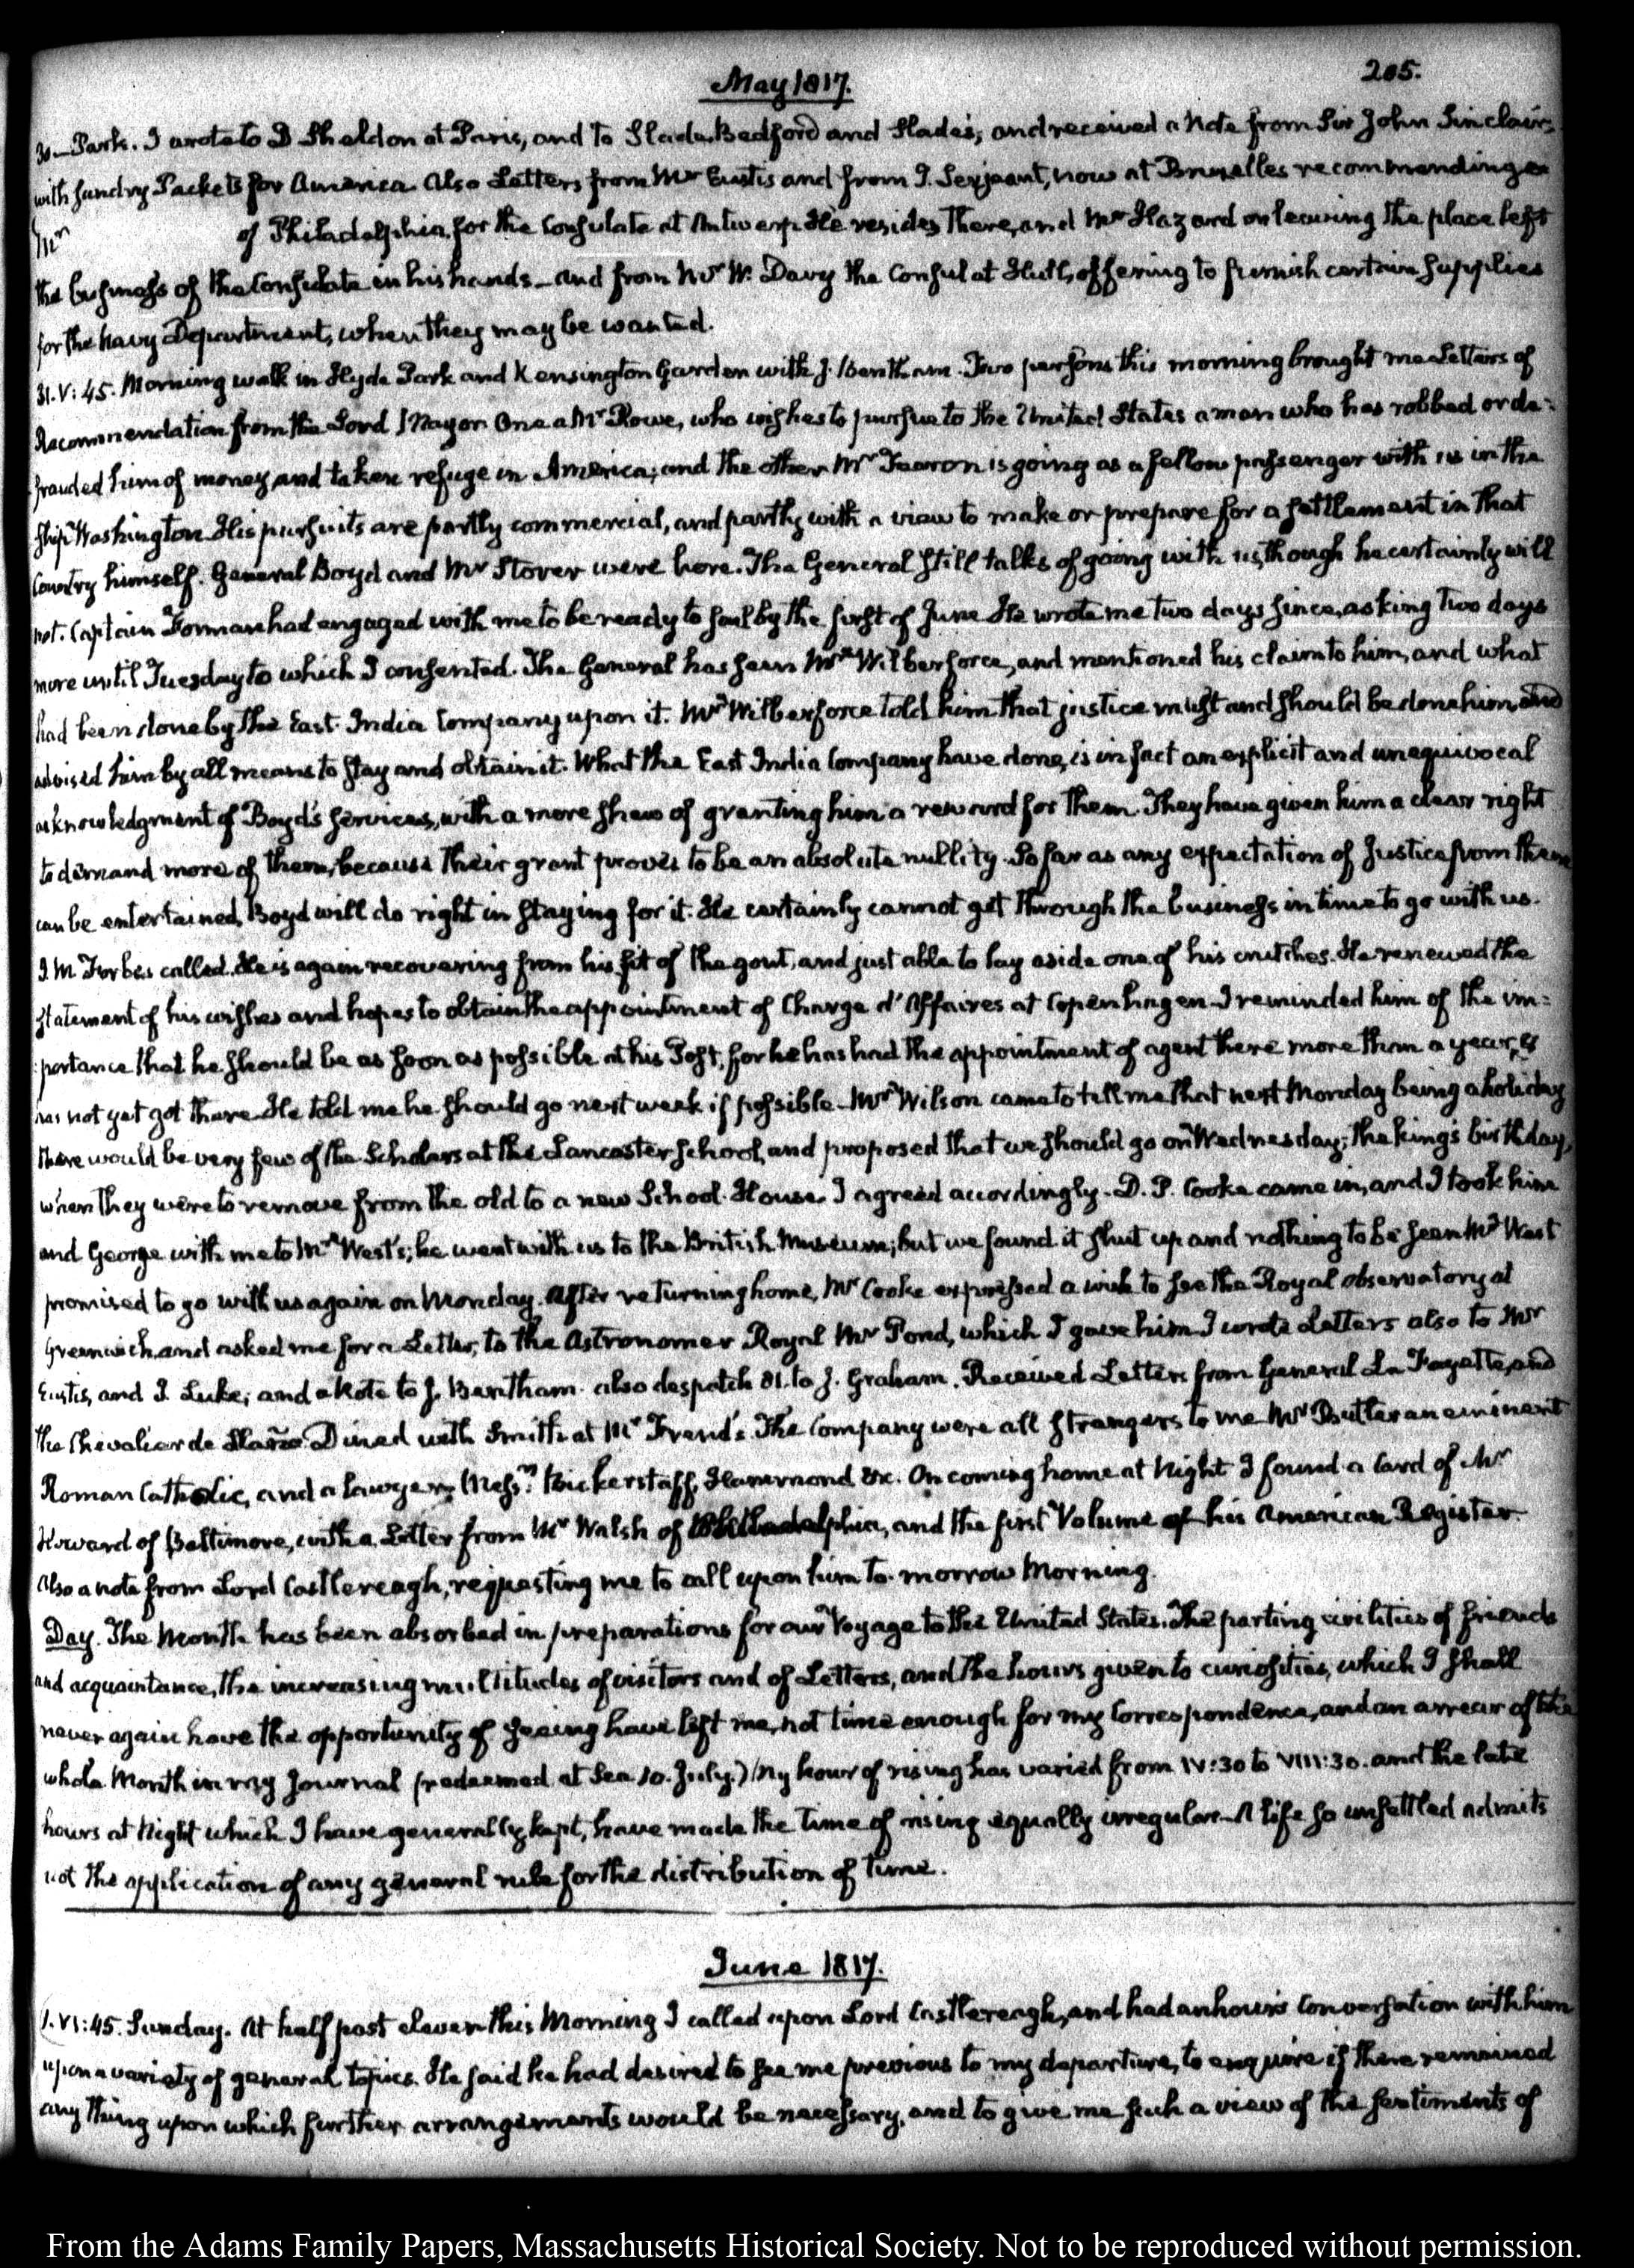 May 1817.
205.
30— Park. I wrote to D Sheldon at Paris, and to Slade, Bedford and Slades; and received a Note from Sir John Sinclair,
with sundry Packets for America. Also Letters from Mr Eustis and from J. Serjeant, now at Bruxelles recommending a
Mr of Philadelphia, for the Consulate at Antwerp. He resides there, and Mr Hazard on leaving the place left
the business of the Consulate in his hands— and from Mr W. Davy the Consul at Hull, offering to furnish certain supplies
for the Navy Department, when they may be wanted.
31. V:45. Morning walk in Hyde Park and Kensington Garden with J. Bentham. Two persons this morning brought me Letters of
Recommendation from the Lord Mayor. One a Mr Rowe, who wishes to pursue to the United States a man who has robbed or de-
frauded him of money, and taken refuge in America; and the other Mr Fearon is going as a fellow passenger with us in the
Ship Washington. His pursuits are partly commercial, and partly with a view to make or prepare for a settlement in that
Country himself. General Boyd and Mr Storer were here. The General still talks of going with us, though he certainly will
not. Captain Forman had engaged with me to be ready to sail by the first of June. He wrote me two days since, asking two days
more until Tuesday to which I consented. The General has seen Mr Wilberforce, and mentioned his claim to him, and what
had been done by the East-India Company upon it. Mr Wilberforce told him that justice must and should be done him, and
advised him by all means to stay and obtain it. What the East India Company have done, is in fact an explicit and unequivocal
acknowledgment of Boyd's services, with a mere shew of granting him a reward for them. They have given him a clear right
to demand more of them, because their grant proves to be an absolute nullity. So far as any expectation of Justice from them
can be entertained, Boyd will do right in staying for it. He certainly cannot get through the business in time to go with us.
J. M. Forbes called. He is again recovering from his fit of the gout, and just able to lay aside one of his crutches. He renewed the
statement of his wishes and hopes to obtain the appointment of Charge d'Affaires at Copenhagen. I reminded him of the im-
portance that he should be as soon as possible at his Post, for he has had the appointment of agent there more than a year, &
has not yet got there. He told me he should go next week if possible. Mr Wilson came to tell me that next Monday being a holiday
there would be very few of the Scholars at the Lancaster School, and proposed that we should go on Wednesday; the king's birthday,
when they were to remove from the old to a new School-House. I agreed accordingly. D. P. Cooke came in, and I took him
and George with me to Mr West's; he went with us to the British Museum; but we found it shut up and nothing to be seen. Mr West
promised to go with us again on Monday. After returning home, Mr Cooke expressed a wish to see the Royal observatory at
Greenwich, and asked me for a Letter, to the Astronomer Royal Mr Pond, which I gave him. I wrote Letters also to Mr
Eustis, and J. Luke; and a Note to J. Bentham. also despatch 81. to J. Graham. Received Letters from General La Fayette, and
the Chevalier de Dined with Smith at Mr Frend's. The Company were all strangers to me Mr Butler an eminent
Roman Catholic, and a lawyer, Messrs Bickerstaff, Hammond &c. On coming home at Night I found a Card of Mr
Howard of Baltimore, with a Letter from Mr Walsh of Philadelphia, and the first Volume of his American Register.
Also a note from Lord Castlereagh, requesting me to call upon him to-morrow Morning.
Day. The Month has been absorbed in preparations for our Voyage to the United States. The parting civilities of friends
and acquaintance, the increasing multitudes of visitors and of Letters, and the hours given to curiosities, which I shall
never again have the opportunity of seeing have left me, not time enough for my Correspondence, and an arrear of the
whole Month in my Journal (redeemed at Sea 10. July.) My hour of rising has varied from IV:30 to VIII:30. and the late
hours at Night which I have generally kept, have made the time of rising equally irregular. A life so unsettled admits
not the application of any general rule for the distribution of time.
June 1817.
1. VI:45. Sunday. At half past eleven this Morning I called upon Lord Castlereagh, and had an hour's Conversation with him
upon a variety of general topics. He said he had desired to see me previous to my departure, to enquire if there remained
any thing upon which further arrangements would be necessary, and to give me such a view of the sentiments of
From the Adams Family Papers, Massachusetts Historical Society. Not to be reproduced without permission.